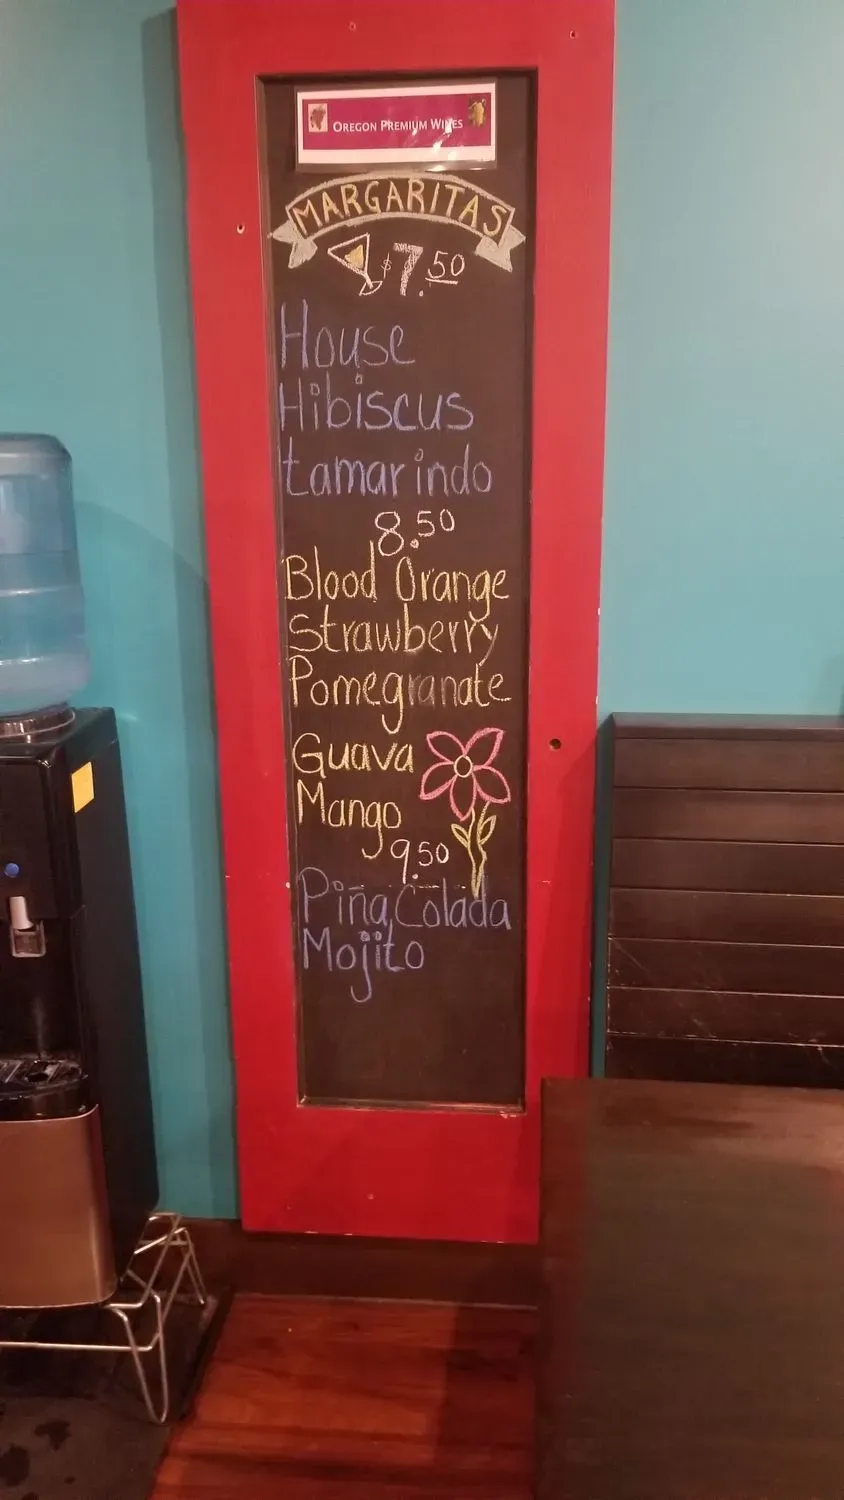 OREGON PREMIUM WINES
MARGARITAS
$7.50
House
Hibiscus
tamarindo
8.50
Blood Orange
Strawberry
Pomegranate
Guava
Mango
9.50
Piña Colada
Mojito